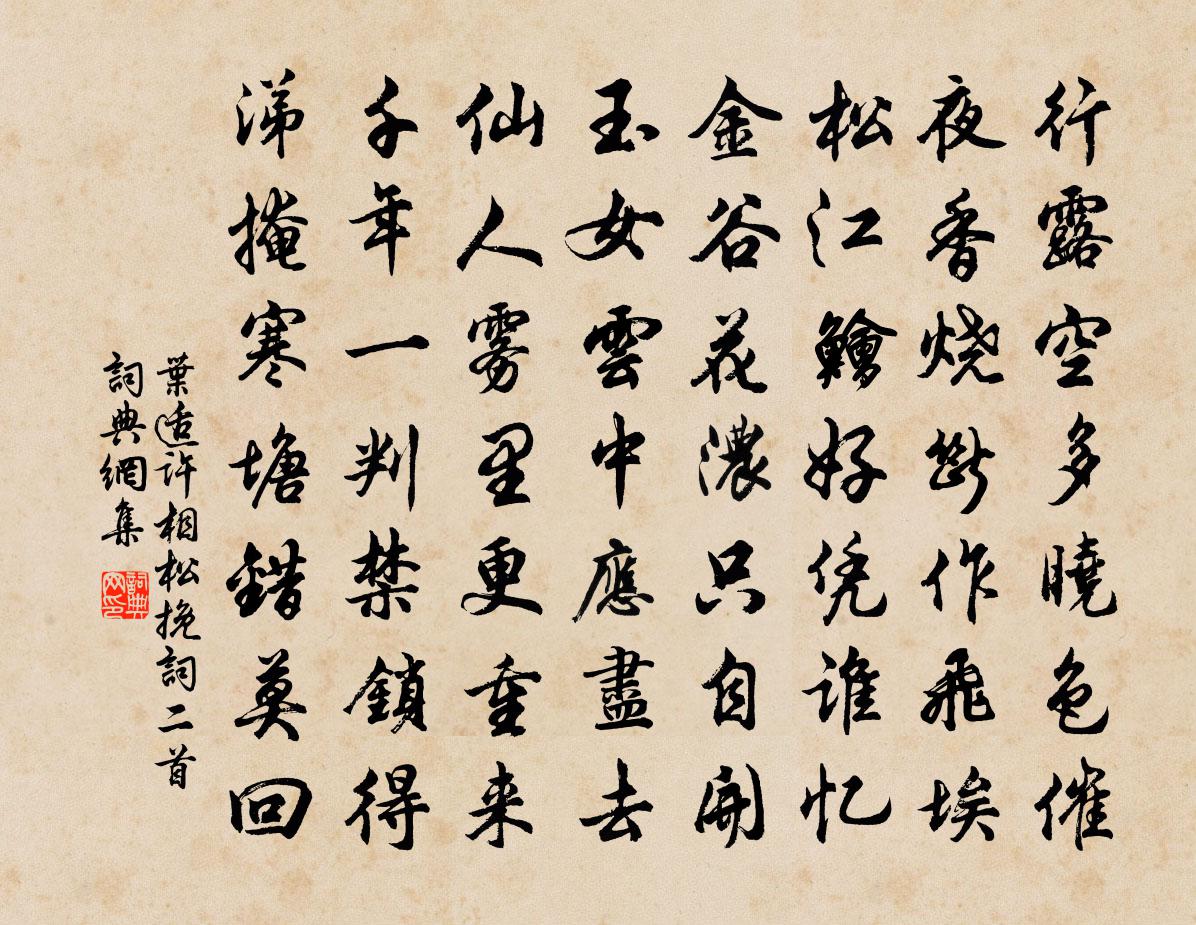 行露空多曉色催
夜香烧断作飛埃
松江鱠好凭誰忆
金谷花濃只自開
玉女雲中應盡去
仙人雾里更重来
千年一判禁鎖得
涕掩寒塘錯莫回
葉适許相松挽詞二首
詞典網集
詞典
网印